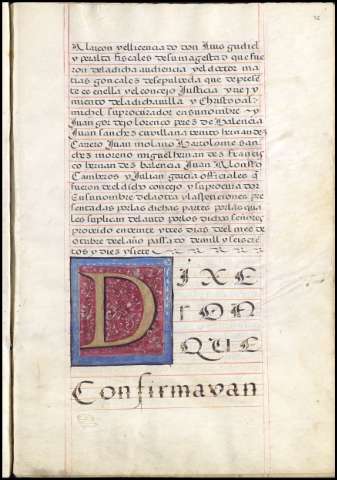 Alarcon y el licenciado don luis gudiel
y peralta fiscales de su magestad que fue
ron de la dicha audiencia y el doctor ma
tias gonçales de sepulveda que de prese
te es en ella y el conçejo Justicia y Reji
miento de la dicha villa y Christoval
michel su procurador en su nombre y
Juan gordejo lorenço peres de Valencia
Juan sanches benito hernandes
Carero Juan molano Bartolome san
ches moreno miguel hernandes Françis
co hernandes de balencia Juan Alonso
Cambros y Julian garcia ofiçiales q
fueron del dicho concejo y su procurador
En su nombre de la otra y las petiçiones pre
sentadas por las dichas partes por las qua
les suplican del auto por los dichos señores
proveido en veinte y tres dias de el mes de
otubre del año passado de mill y seiscien
tos y diez y siete
DIXE
rON
QUE
Confirmavan